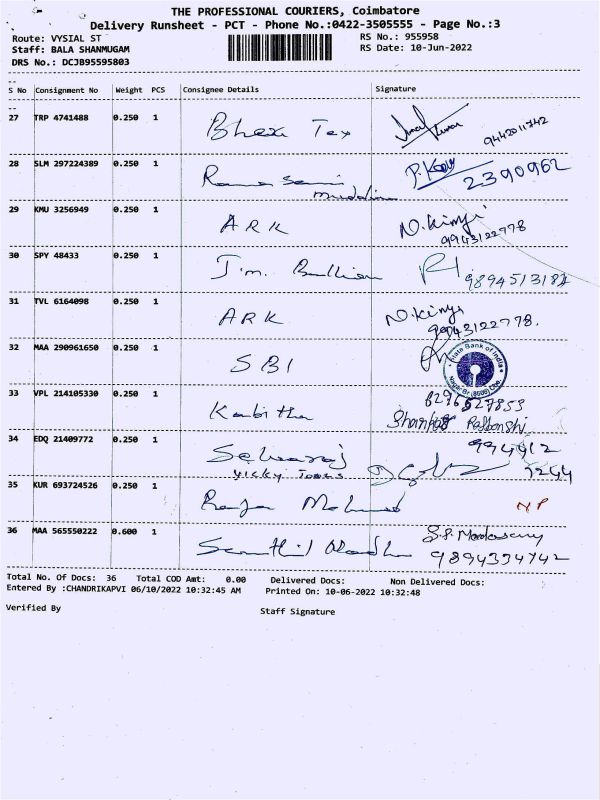 THE PROFESSIONAL COURIERS, Coimbatore
Delivery Runsheet - PCT - Phone No.:0422-3505555 - Page No.:3
Route: VYSIAL ST RS No.: 955958
Staff: BALA SHANMUGAM RS Date: 10-Jun-2022
DRS No.: DCJB95595803
S No Consignment No Weight PCS Consignee Details Signature
27 TRP 4741488 0.250 1 Tex 9442011742
28 SLM 297224389 0.250 1 Rama Sami 2390962
29 KMU 3256949 0.250 1 ARK N.
9943122778
30 SPY 48433 0.250 1 J.m. Bullion
31 TVL 6164098 0.250 1 ARK N.
9943122778.
32 MAA 290961650 0.250 1 SBI State Bank of India
33 VPL 214105330 0.250 1 Kabitha 8296527853
34 EDQ 21409772 0.250 1 Selvaraj 994412
Vicky Tools 7244
35 KUR 693724526 0.250 1 Raja Mohmed NP
36 MAA 565550222 0.600 1 Senthil
9894334742
Total No. Of Docs: 36 Total COD Amt: 0.00 Delivered Docs: Non Delivered Docs:
Entered By :CHANDRIKAPVI 06/10/2022 10:32:45 AM Printed On: 10-06-2022 10:32:48
Verified By Staff Signature